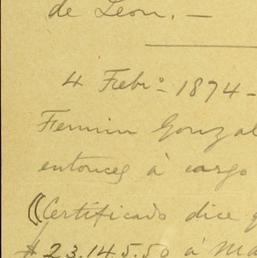 de Leon. —
4 Febro. 1874 -
Fermin Gonzal
entonces á cargo
(Certificado dice q
$23.145.50 á Ma